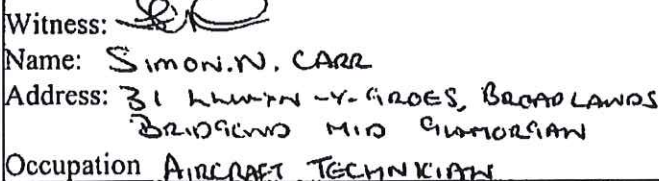 Witness:
Name: SIMON.N. CARR
Address: 31 LLWYN-Y-GROES, BROADLANDS
BRIDGEND MID GLAMORGAN
Occupation AIRCRAFT TECHNICIAN